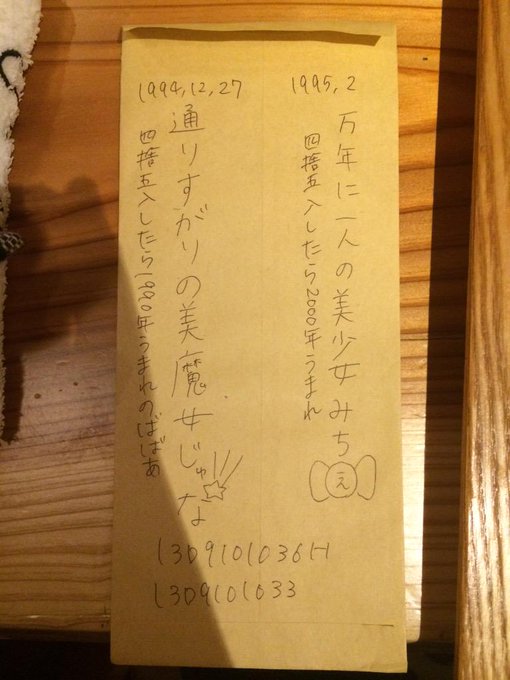 1995,2
万年に一人の美少女みち
え
四捨五入したら2000年うまれ
1994,12,27
通りすがりの美魔女じゅな
四捨五入したら1990年うまれのばばあ
1309101036H
1309101033